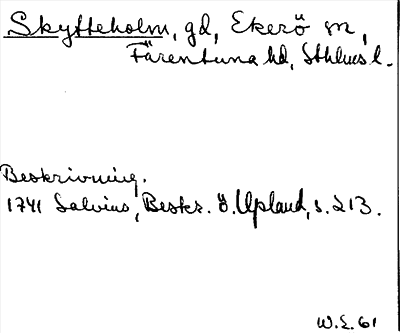 Skytteholm, gd, Ekerö sn,
Färentuna hd, Sthlms l.
Beskrivning.
1741 Salvius, Beskr. ö. Upland, s. 213.
W.E. 61